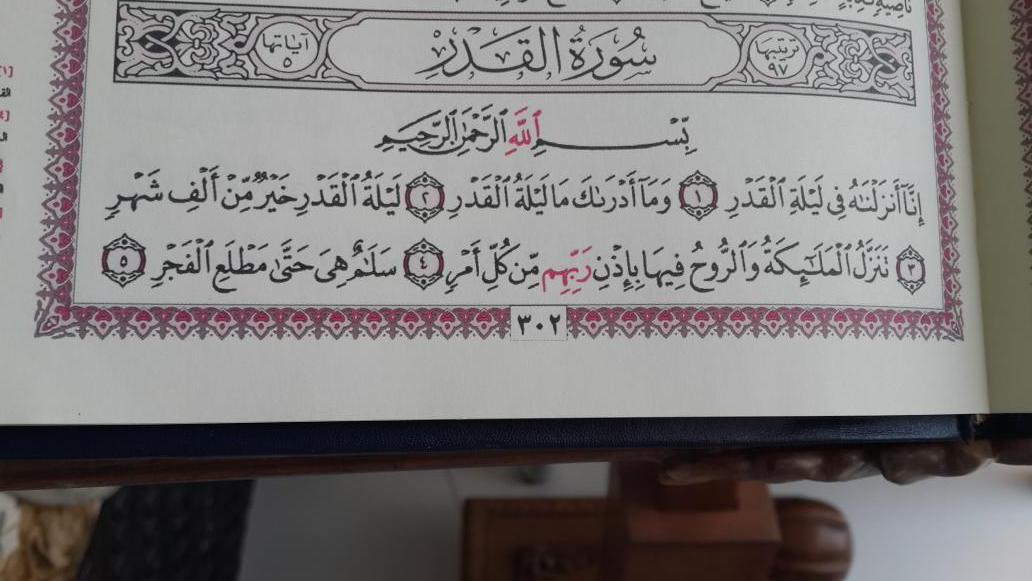 ترتيبها ٩٧ سُورَةُ الْقَدْرِ آياتها ٥
بِّسْمِ ٱللَّهِ ٱلرَّحْمَٰنِ ٱلرَّحِيمِ
إِنَّآ أَنزَلْنَٰهُ فِى لَيْلَةِ ٱلْقَدْرِ ١ وَمَآ أَدْرَىٰكَ مَا لَيْلَةُ ٱلْقَدْرِ ٢ لَيْلَةُ ٱلْقَدْرِ خَيْرٌ مِّنْ أَلْفِ شَهْرٍ
٣ تَنَزَّلُ ٱلْمَلَٰٓئِكَةُ وَٱلرُّوحُ فِيهَا بِإِذْنِ رَبِّهِم مِّن كُلِّ أَمْرٍ ٤ سَلَٰمٌ هِىَ حَتَّىٰ مَطْلَعِ ٱلْفَجْرِ ٥
٣٠٢